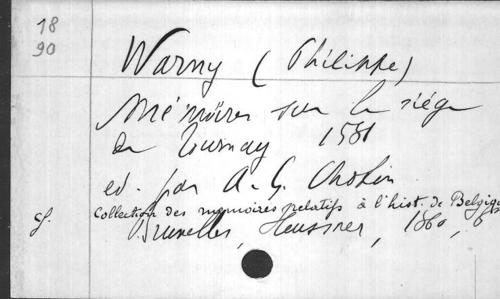 18
90
Warny (Philippe)
Mémoires sur le siége
de Tournay 1581
ed. par A.-G. Chotin
Collection des memoires relatifs à l'hist. de Belgique
cf. Bruxelles, Heussner, 1860, 8